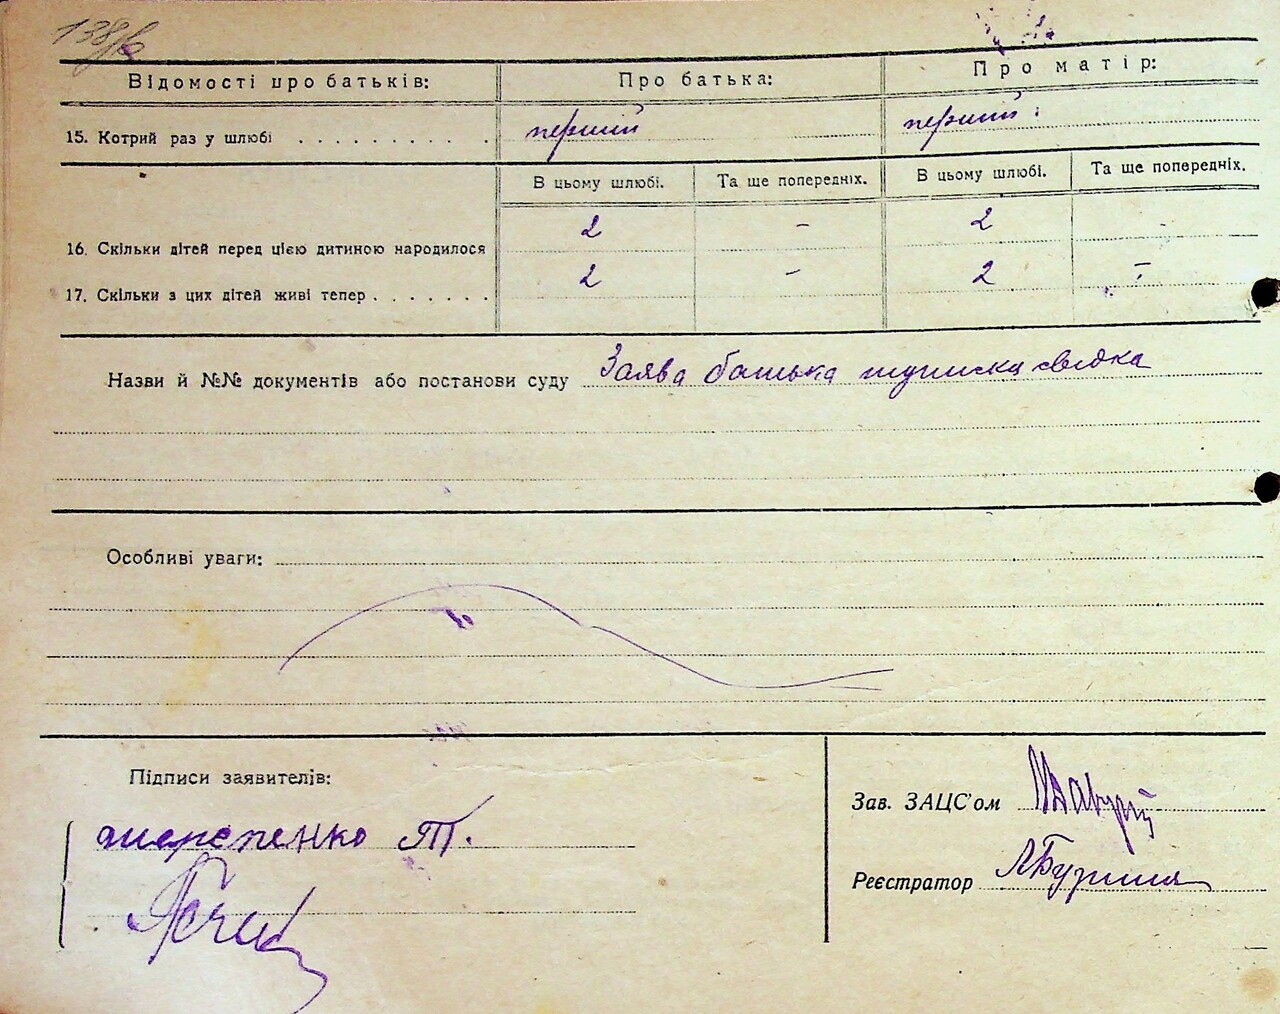 138
Відомості про батьків: Про батька: Про матір:
15. Котрий раз у шлюбі . . . . . . . . . . перший перший
В цьому шлюбі. Та ще попередніх. В цьому шлюбі. Та ще попередніх.
16. Скільки дітей перед цією дитиною народилося 2 - 2 -
17. Скільки з цих дітей живі тепер . . . . . . . 2 - 2 -
Назви й №№ документів або постанови суду Заява батька свідка
Особливі уваги:
Підписи заявителів:
Зав. ЗАЦС'ом
Т.
Реєстратор